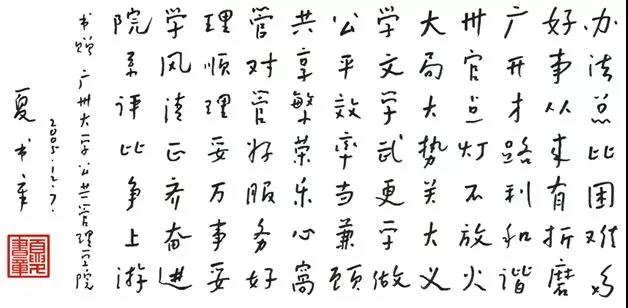 办法总比困难多
好事从来有折磨
广开才路利和谐
州官点灯不放火
大局大势关大义
学文学武更学做
公平效率当兼顾
共享繁荣乐心窝
管对管好服务好
理顺理妥万事妥
学风清正齐奋进
院系评比争上游
书赠广州大学公共管理学院
2005.12.7.
夏书章
夏書章